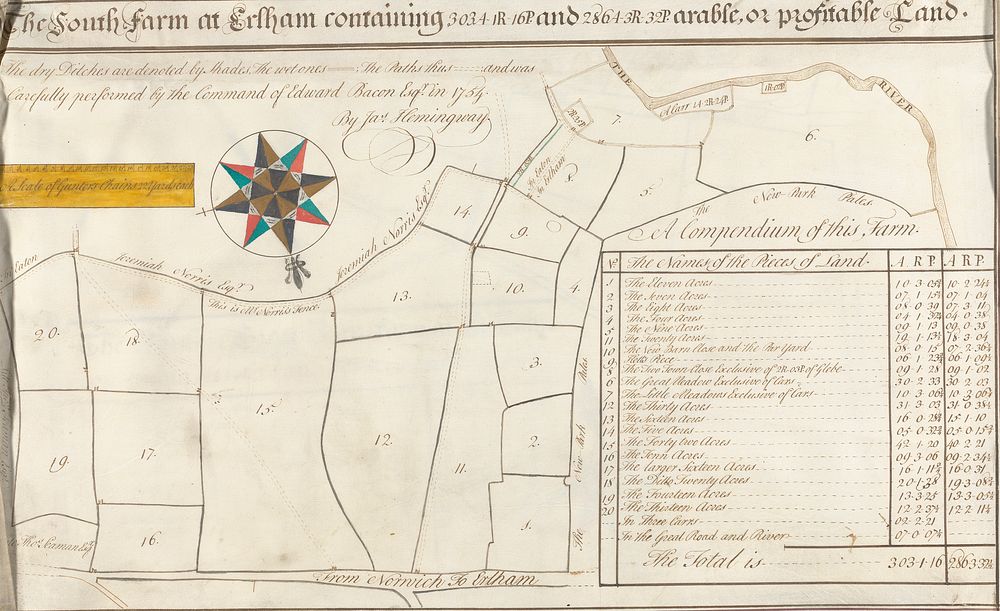 The South Farm at Erlham containing 303A·1R·16P. and 286A·3R·32P. arable, or profitable Land.
The dry Ditches are denoted by shades, The wet ones The Paths thus and was
Carefully performed by the Command of Edward Bacon Esqr. in 1754.
By Jas. Hemingway.
A Scale of Gunters Chains 22 Yards each
THE RIVER
A Carr 1A·2R·24P
1R·02P
2R·35P
7.
6.
In Eaton
In Erlham
8.
5.
The New Park Pales.
14.
9.
Jeremiah Norris Esqr.
Eaton
Jeremiah Norris Esqr.
This is Mr. Norris's Fence.
13.
10.
4.
20.
18.
15.
3.
12.
19.
17.
11.
2.
16.
1.
The New Park Pales
Thos. Seaman Esqr.
From Norwich To Erlham
A Compendium of this Farm.
No. The Names of the Pieces of Land. A R P. A R P.
1 The Eleven Acres 10 0 05¾ 10 2 24½
2 The Seven Acres 07 1 15½ 07 1 04
3 The Eight Acres 08 0 39 07 3 11
4 The Four Acres 04 1 32¼ 04 0 38
5 The Nine Acres 09 1 13 09 0 38
11 The Twenty Acres 19 1 13¼ 18 3 04
10 The New Barn Close and the Par Yard 08 0 15 07 2 36¼
9 Piece 06 1 23¾ 06 1 09¼
8 The Two Town Close Exclusive of 2R·03P of Glebe 09 1 28 09 1 02
6 The Great Meadow Exclusive of Cars 30 2 33 30 2 03
7 The Little Meadows Exclusive of Cars 10 3 06¼ 10 3 06¼
12 The Thirty Acres 31 3 03 31 0 38¼
13 The Sixteen Acres 16 0 28¾ 15 1 10
14 The Five Acres 05 0 32¾ 05 0 15¾
15 The Forty two Acres 42 1 20 40 2 21
16 The Tenn Acres 09 3 06 09 2 34½
17 The larger Sixteen Acres 16 1 11¾ 16 0 31
18 The Ditto Twenty Acres 20 1 38 19 3 08¾
19 The Fourteen Acres 13 3 25 13 3 05¼
20 The Thirteen Acres 12 2 37¼ 12 2 11¼
In Three Carrs 02 2 21
In the Great Road and River 07 0 07¼
The Total is 303·1·16 286·3·32